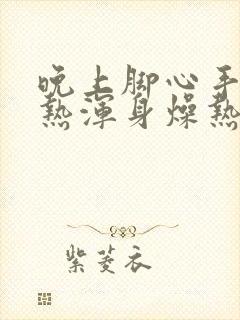 晚上脚心手
热浑身燥热
紫菱衣